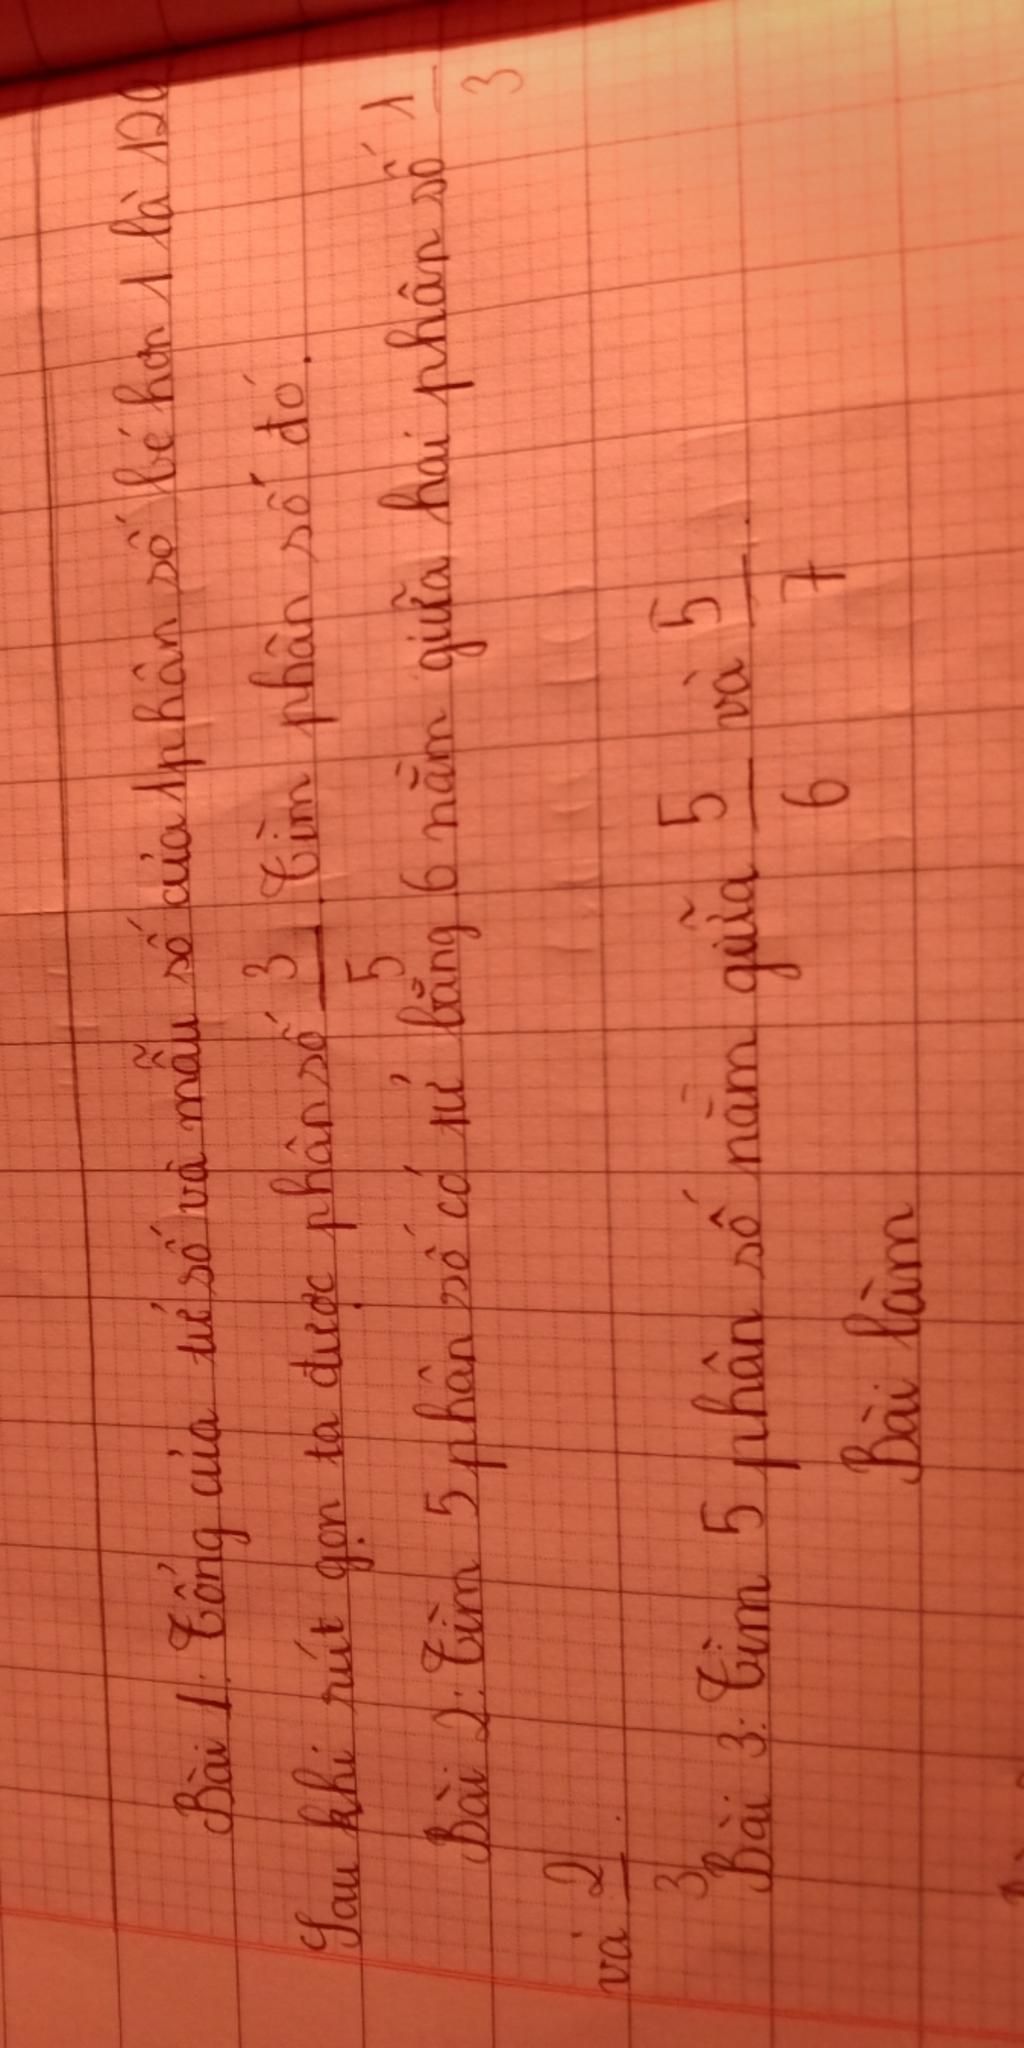 Bài 1: Tổng của tử số và mẫu số của 1 phân số bé hơn 1 là 120
Sau khi rút gọn ta được phân số 3/5. Tìm phân số đó.
Bài 2: Tìm 5 phân số có tử bằng 6 nằm giữa hai phân số 1/3
và 2/3.
Bài 3: Tìm 5 phân số nằm giữa 5/6 và 5/7.
Bài làm